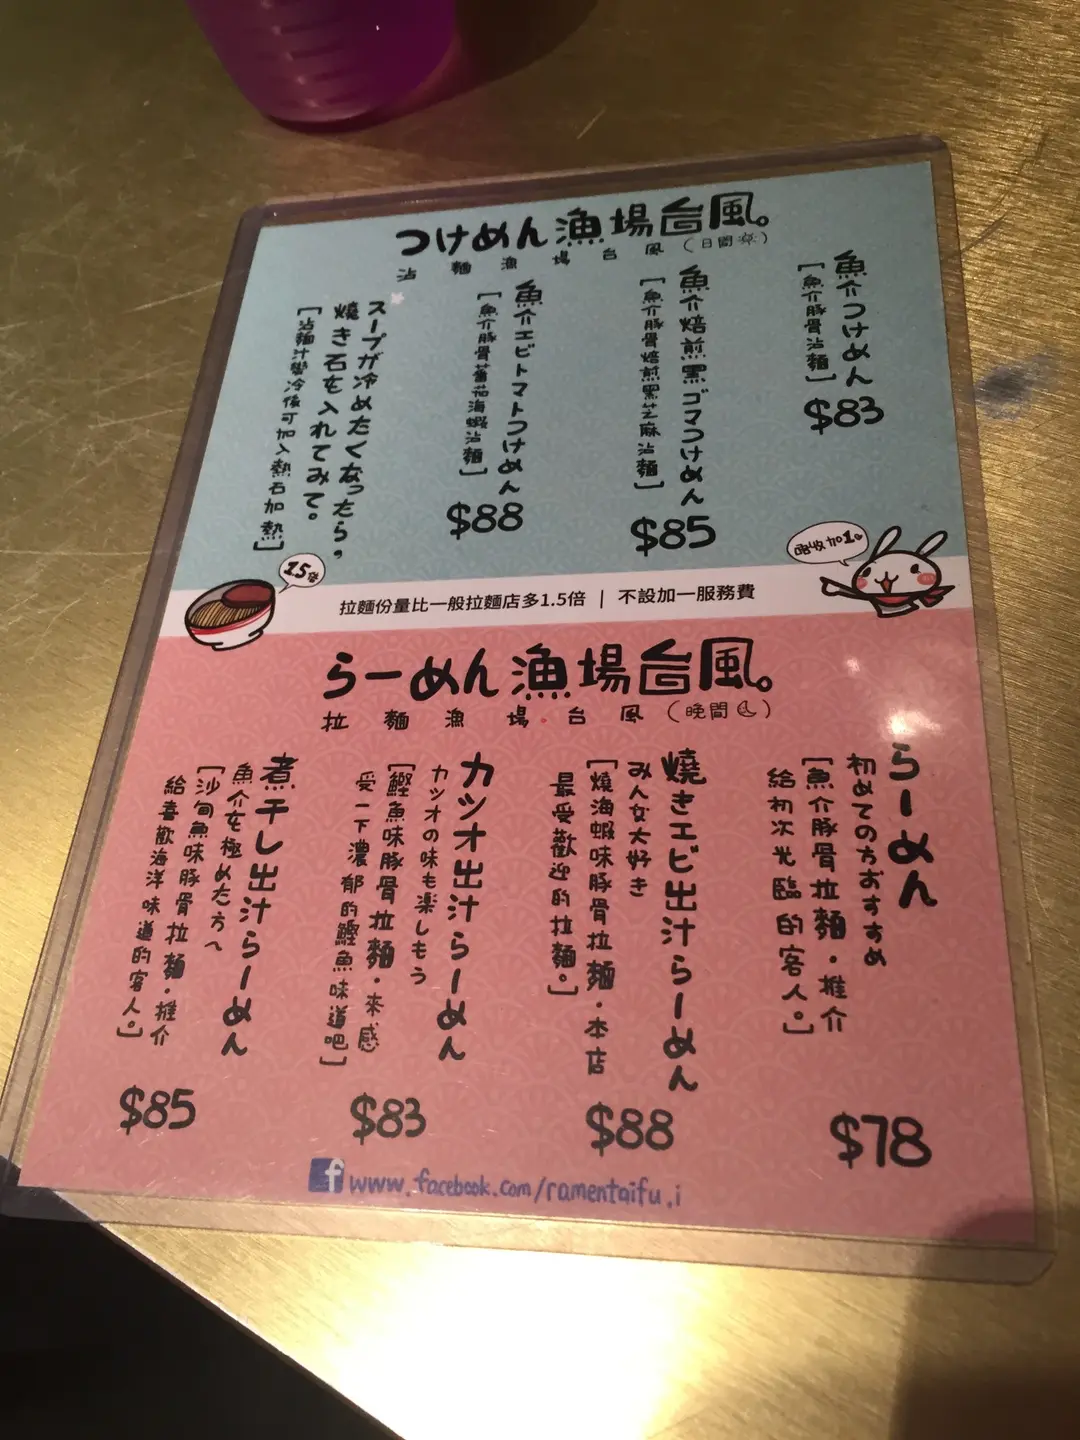 つけめん漁場台風。
沾麵漁場台風(日間)
魚介つけめん
[魚介豚骨沾麵]
$83
魚介焙煎黒ゴマつけめん
[魚介豚骨焙煎黑芝麻沾麵]
$85
魚介エビトマトつけめん
[魚介豚骨蕃茄海蝦沾麵]
$88
スープが冷めたくなったら,
焼き石を入れてみて。
[沾麵汁變冷後可加入熱石加熱]
1.5倍
拉麵份量比一般拉麵店多1.5倍 | 不設加一服務費
唔收加1。
らーめん漁場台風。
拉麵漁場台風(晚間)
らーめん
初めての方おすすめ
[魚介豚骨拉麵・推介
給初次光臨的客人。]
$78
燒きエビ出汁らーめん
みんな大好き
[燒海蝦味豚骨拉麵・本店
最受歡迎的拉麵。]
$88
カツオ出汁らーめん
カツオの味も楽しもう
[鰹魚味豚骨拉麵・來感
受一下濃郁的鰹魚味道吧]
$83
煮干し出汁らーめん
魚介を極めた方へ
[沙甸魚味豚骨拉麵・推介
給喜歡海洋味道的客人。]
$85
f www.facebook.com/ramentaifu.i